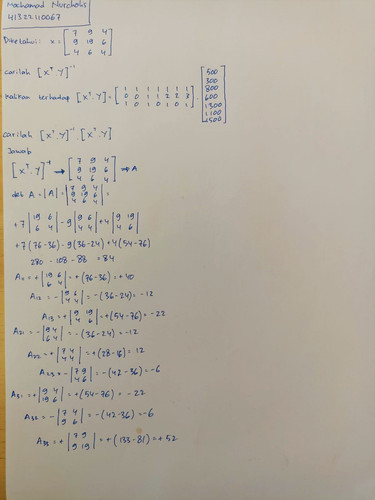 Mochamad Nurcholis
41322110067
Diketahui: x = [7 9 4
9 19 6
4 6 4]
carilah [xᵀ.Y]⁻¹
kalikan terhadap [xᵀ.Y] = [1 1 1 1 1 1 1
0 0 1 1 2 2 3
1 0 1 0 1 0 1] . [500
300
800
600
1300
1100
1500]
carilah [xᵀ.Y]⁻¹.[xᵀ.Y]
Jawab
[xᵀ.Y]⁻¹ → [7 9 4
9 19 6
4 6 4] → A
deh A = |A| = |7 9 4
9 19 6
4 6 4| =
+7 |19 6
6 4| -9 |9 6
4 4| +4 |9 19
4 6|
+7 (76-36) -9(36-24) +4(54-76)
280 - 108 - 88 = 84
A₁₁ = + |19 6
6 4| = +(76-36) = +40
A₁₂ = - |9 6
4 4| = -(36-24) = -12
A₁₃ = + |9 19
4 6| = +(54-76) = -22
A₂₁ = - |9 4
6 4| = -(36-24) = -12
A₂₂ = + |7 4
4 4| = +(28-16) = 12
A₂₃ = - |7 9
4 6| = -(42-36) = -6
A₃₁ = + |9 4
19 6| = +(54-76) = -22
A₃₂ = - |7 4
9 6| = -(42-36) = -6
A₃₃ = + |7 9
9 19| = +(133-81) = +52